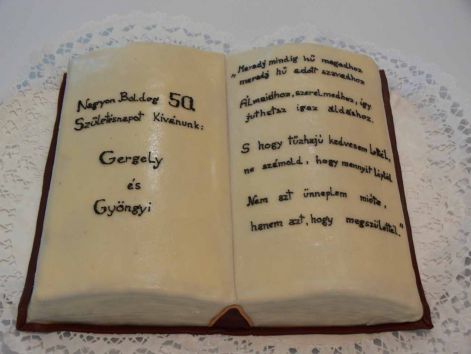 Nagyon Boldog 50.
Születésnapot Kívánunk:
Gergely
és
Gyöngyi
„Maradj mindig hű magadhoz
maradj hű adott szavadhoz
Álmaidhoz, szerelmedhez, így
juthatsz igaz áldáshoz.
S hogy tűzhajú kedvesem lettél,
ne számold, hogy mennyit léptél
Nem azt ünneplem miőte,
hanem azt, hogy megszülettél."